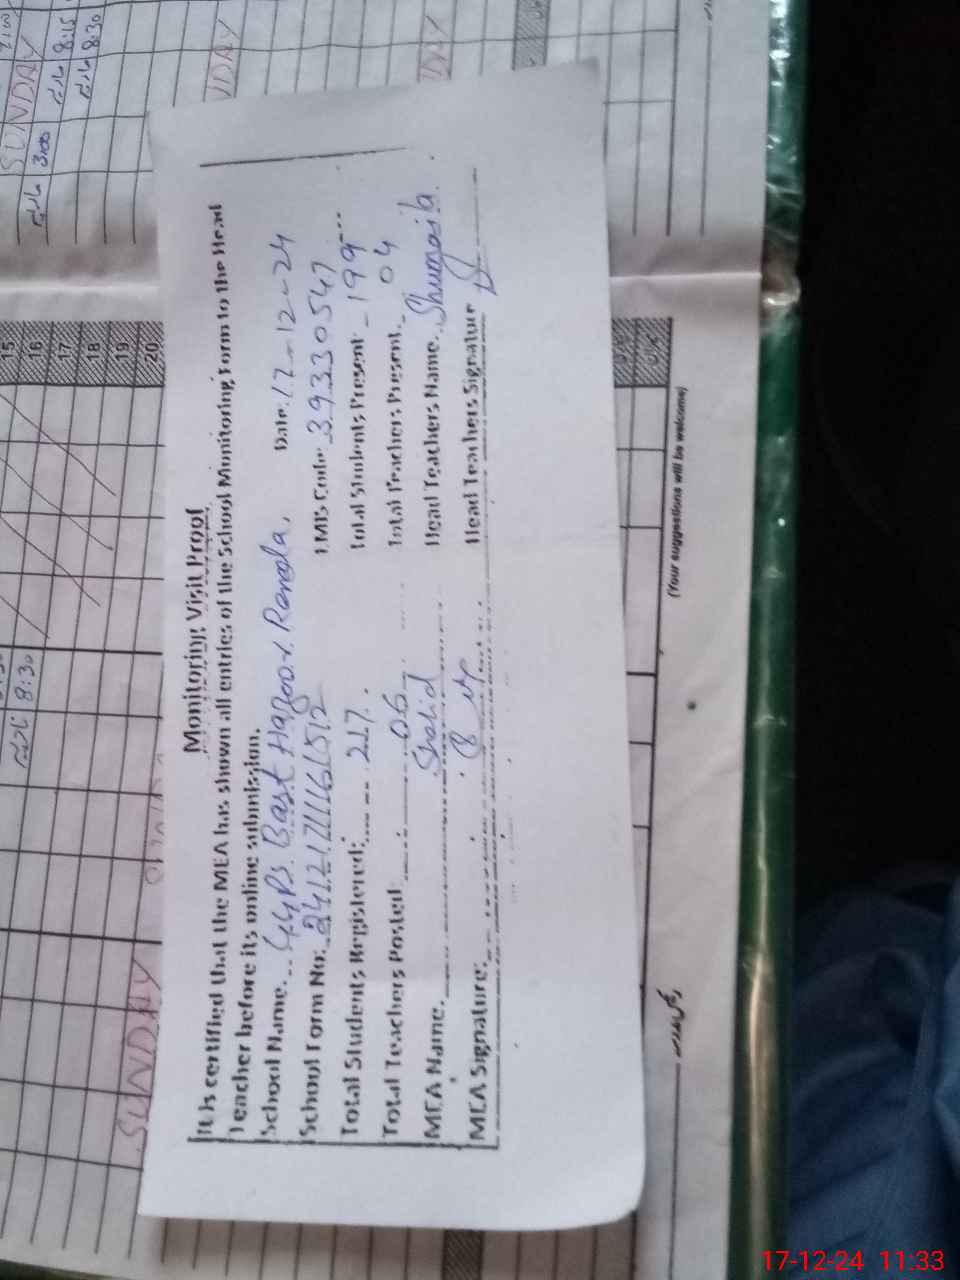 Monitoring Visit Proof
It is certified that the MEA has shown all entries of the School Monitoring Form to the Head
Teacher before its online submission.
School Name... GGPS. Bast Date: 17-12-24
School Form No: 24121711161512 EMIS Code: 39330547
Total Students Registered: 217. Total Students Present 199
Total Teachers Posted: 06 Total Teachers Present. 04
MEA Name. Shahid Head Teachers Name. Shumaila.
MEA Signature: Head Teachers Signature
(Your suggestions will be welcome)
15
16
17
18
19
20
SUNDAY
SUNDAY
8:30
3:00
8:15
8:30
17-12-24 11:33